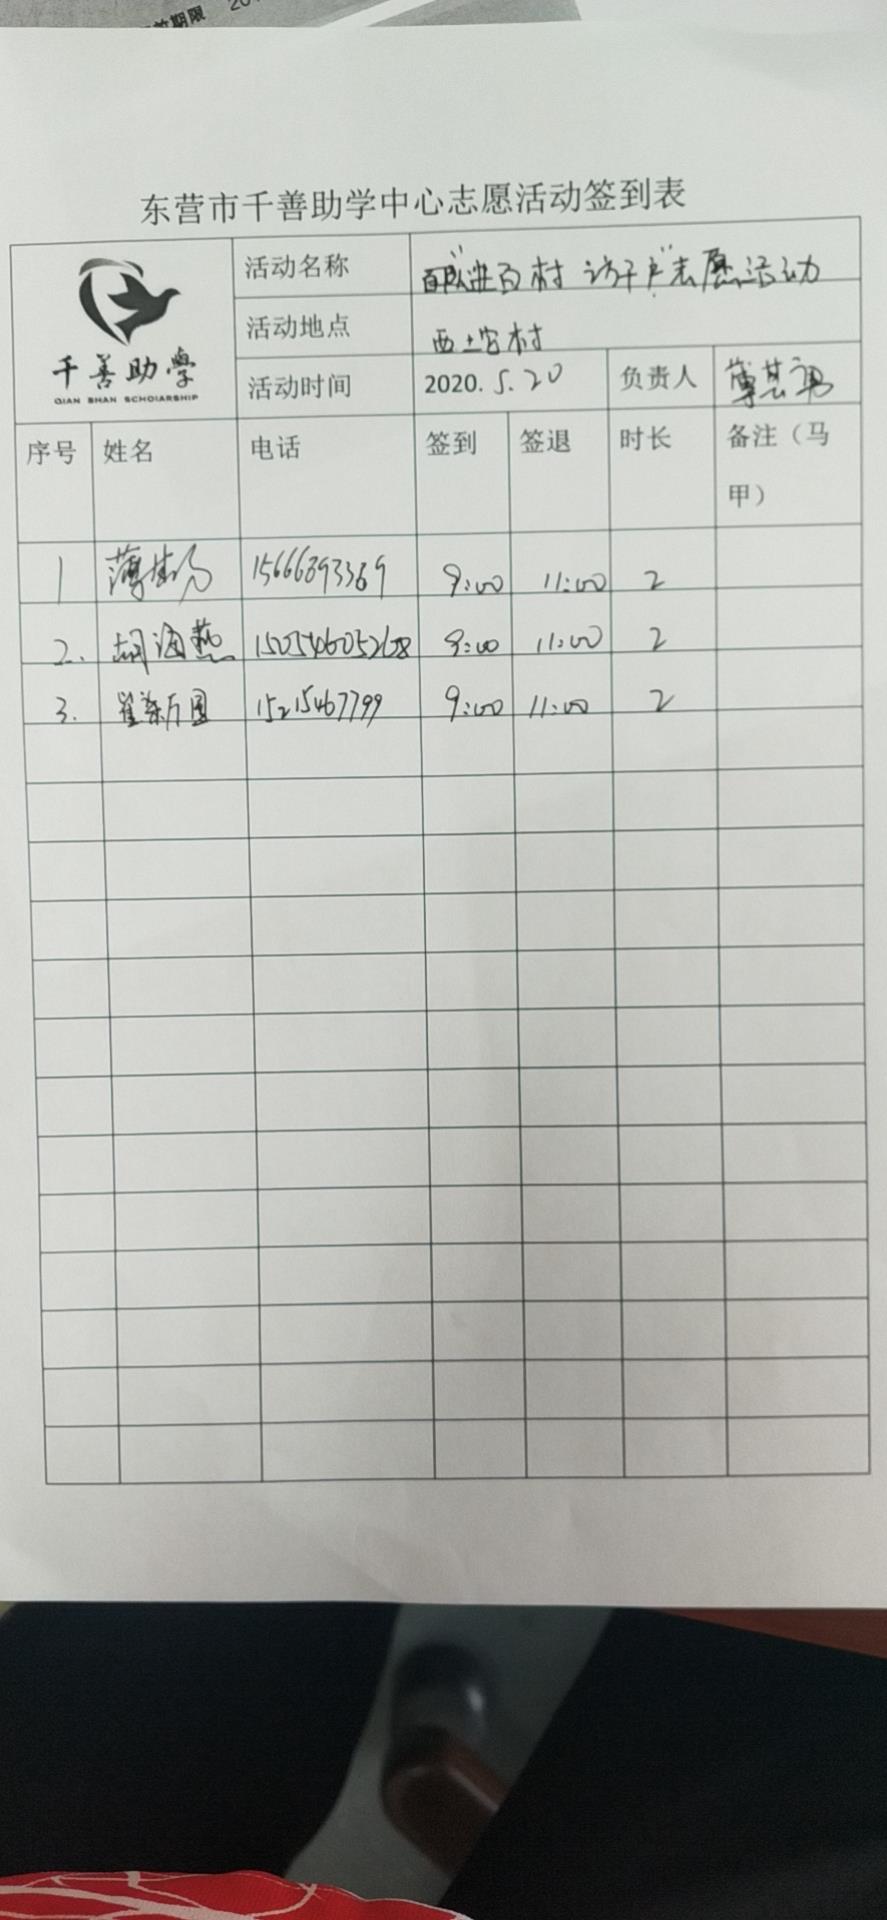 期限 20
东营市千善助学中心志愿活动签到表
千善助学
QIAN SHAN SCHOLARSHIP
活动名称 百队进百村 访千户"志愿活动
活动地点 西 村
活动时间 2020.5.20 负责人
序号 姓名 电话 签到 签退 时长 备注（马
甲）
1 15666893369 9:00 11:00 2
2. 胡海燕 9:00 11:00 2
3. 15215467799 9:00 11:00 2